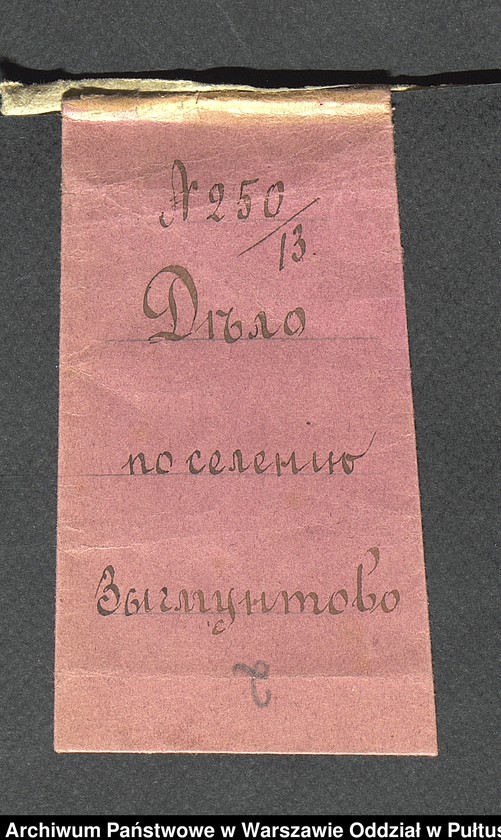 № 250/13.
Дѣло
по селенію
Зыгмунтово
2
Archiwum Państwowe w Warszawie Oddział w Pułtus